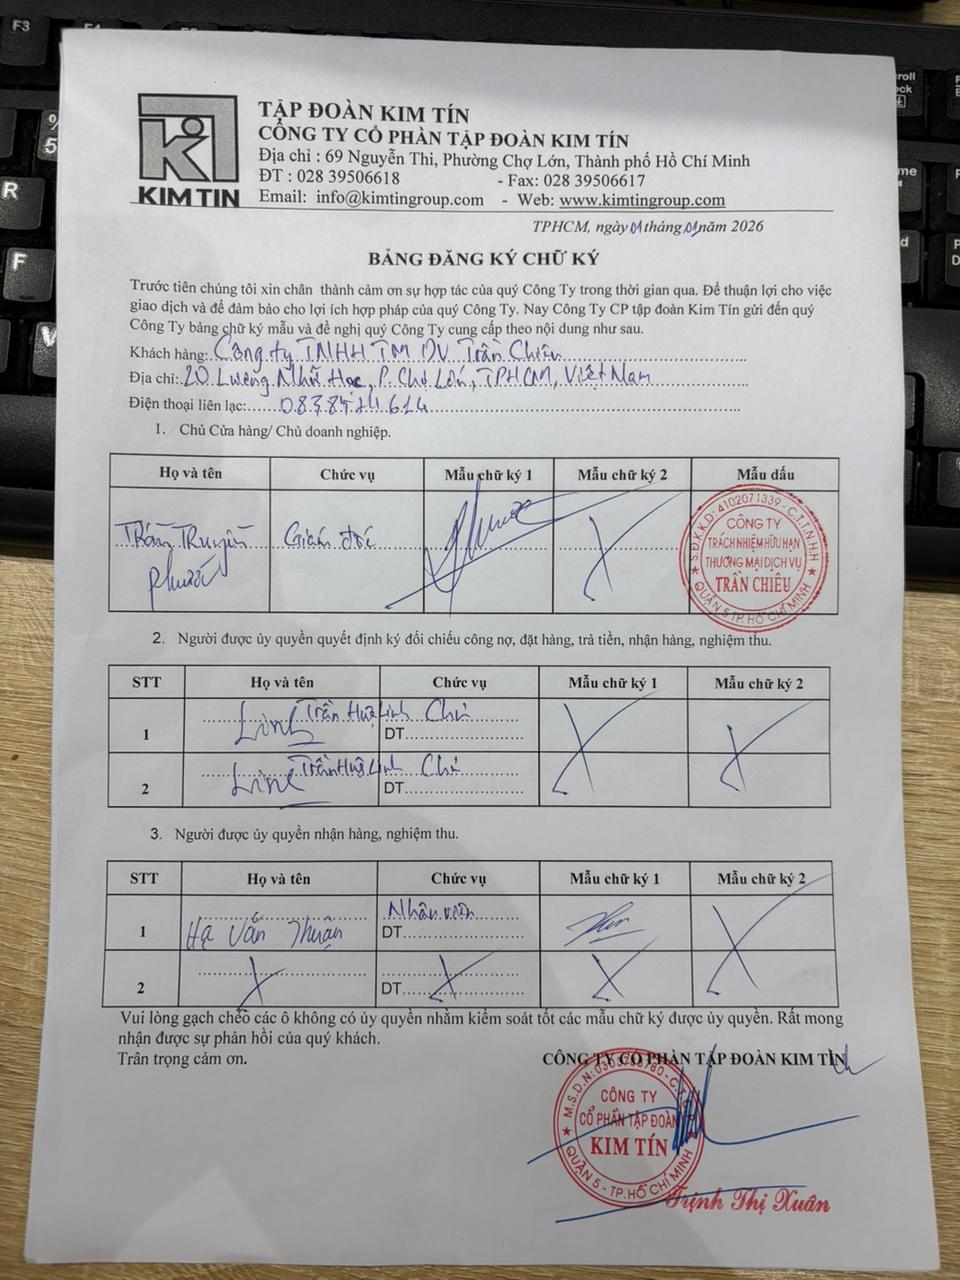 KIM TIN
TẬP ĐOÀN KIM TÍN
CÔNG TY CỔ PHẦN TẬP ĐOÀN KIM TÍN
Địa chỉ : 69 Nguyễn Thi, Phường Chợ Lớn, Thành phố Hồ Chí Minh
ĐT : 028 39506618 - Fax: 028 39506617
Email: info@kimtingroup.com - Web: www.kimtingroup.com
TPHCM, ngày 01 tháng 01 năm 2026
BẢNG ĐĂNG KÝ CHỮ KÝ
Trước tiên chúng tôi xin chân thành cảm ơn sự hợp tác của quý Công Ty trong thời gian qua. Để thuận lợi cho việc
giao dịch và để đảm bảo cho lợi ích hợp pháp của quý Công Ty. Nay Công Ty CP tập đoàn Kim Tín gửi đến quý
Công Ty bảng chữ ký mẫu và đề nghị quý Công Ty cung cấp theo nội dung như sau.
Khách hàng: Công ty TNHH TM DV Trần Chiêu
Địa chỉ: 20 Lương Nhữ Học, P. Chợ Lớn, TPHCM, Việt Nam
Điện thoại liên lạc:
1. Chủ Cửa hàng/ Chủ doanh nghiệp.
Họ và tên Chức vụ Mẫu chữ ký 1 Mẫu chữ ký 2 Mẫu dấu
Trần Truyền Giám đốc
Phước
S.Đ.K.K.D:4102071339 - C.T.T.N.H.H
CÔNG TY
TRÁCH NHIỆM HỮU HẠN
THƯƠNG MẠI DỊCH VỤ
TRẦN CHIÊU
QUẬN 5 - TP. HỒ CHÍ MINH
2. Người được ủy quyền quyết định ký đối chiếu công nợ, đặt hàng, trả tiền, nhận hàng, nghiệm thu.
STT Họ và tên Chức vụ Mẫu chữ ký 1 Mẫu chữ ký 2
1 Linh Trần Huệ Linh Chủ
ĐT
2 Linh Trần Huệ Linh Chủ
ĐT
3. Người được ủy quyền nhận hàng, nghiệm thu.
STT Họ và tên Chức vụ Mẫu chữ ký 1 Mẫu chữ ký 2
1 Hạ Văn Thuận Nhân viên
ĐT
2 ĐT
Vui lòng gạch chéo các ô không có ủy quyền nhằm kiểm soát tốt các mẫu chữ ký được ủy quyền. Rất mong
nhận được sự phản hồi của quý khách.
Trân trọng cảm ơn.
CÔNG TY CỔ PHẦN TẬP ĐOÀN KIM TÍN
CÔNG TY
CỔ PHẦN TẬP ĐOÀN
KIM TÍN
QUẬN 5 - TP. HỒ CHÍ MINH
Trịnh Thị Xuân